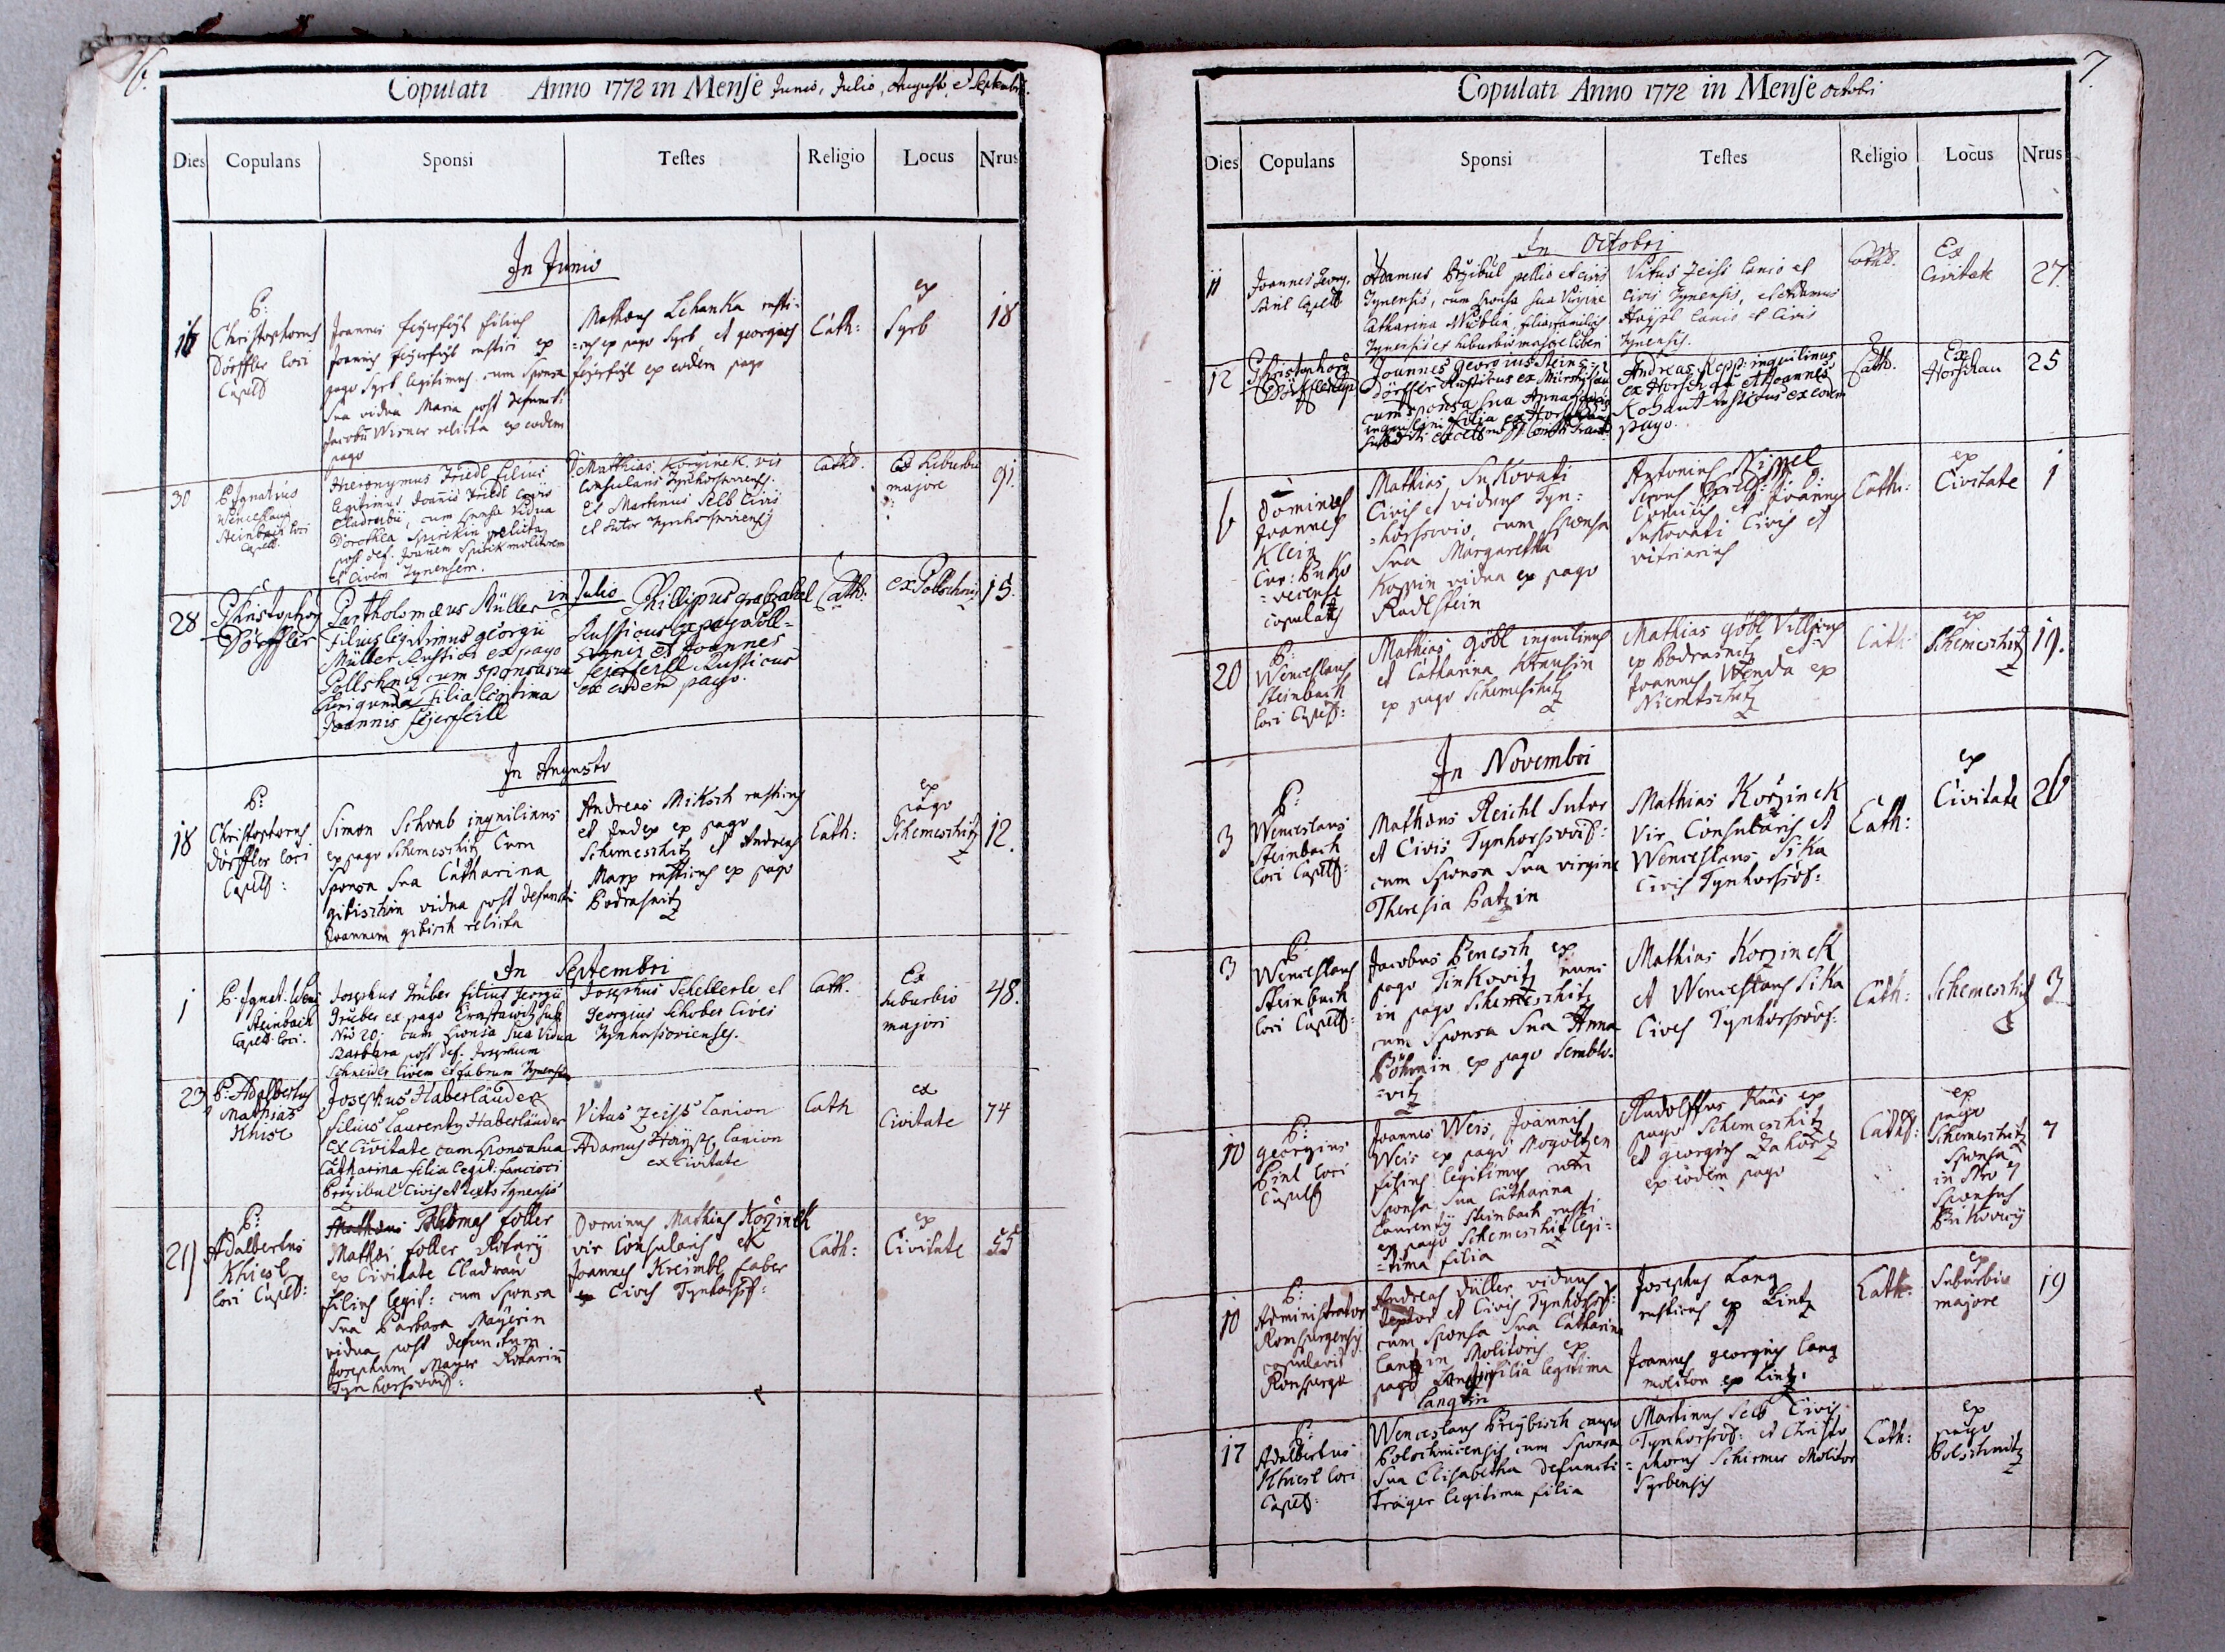 6.
Copulati Anno 1772 in Mense Junio, Julio, Augusto, et Septembri.
Dies Copulans Sponsi Testes Religio Locus Nrus
In Junio
16
P:
Christophorus
Dörffler loci
Capell
Joannes feyerfeyl filius
Joannis feyerfeyl rustici ex
pago Syrb legitimus cum Sponsa
Sua vidua Maria post defuncti
Jacobū Wisner relicta ex eodem
pago
Mathæus Lehanka rusti-
=cus ex pago Syrb, et georgius
feyerfeyl ex eodem pago
Cath:
ex
Syrb
18
30
P Ignatius
Wenceslaus
Steinbach loci
Capell.
Hieronymus Friedl filius
legitimus Joannis Friedl Civis
Cladrubii, cum sponsa Vidua
Dorothea Spirekin relicta
post def. Joanem Spirek molitorem
et Civem Tynensem.
D: Matthias Kořzinek vir
Consularis Tynhorssoviens.
et Martinus Selb Civis
et Sutor Tynhorssoviensis
Cath.
Ex Suburbio
majore
91.
in Julio
28
P Christophorus
Dörffler
Bartholomæus Müller
Filius legitimus georgii
Müller Rustici ex pago
Pollschnitz cum sponsa sua
Cunigunda Filia legitima
Joannis feyerfeill
Phillipus grabzahel
Rusticus ex pago Poll-
schnitz et Joannes
feyerfeill Rusticus
ex eodem pago.
Cath:
ex Pollschnitz
15.
In Augusto
18
P:
Christophorus
Dörffler loci
Capell:
Simon Schwab inquilinus
ex pago Schemeschitz Cum
Sponsa Sua Catharina
gibischin vidua post defuncti
Joannem gibisch relicta
Andreas Miksch rusticus
et Judex ex pago
Schemeschitz et Andreas
Marx rusticus ex pago
Podrasnitz
Cath:
ex
pago
Schemeschitz
12.
In Septembri
1
P. Ignat. Wenc
Steinbach
Capell. loci.
Josephus Gruber filius Georgii
Grueber ex pago Ernstawitz sub
Nro 20. cum sponsa Sua Vidua
Barbara post def. Josephum
Schneider Civem et fabrum Tynensem
Josephus Schellerle et
Georgius Schober Cives
Tynhorssovienses.
Cath.
Ex
Suburbio
majori
48.
23
P. Adalbertus
Mathias
Khisl
Josephus Haberländer
filius Laurenty Haberländer
ex Civitate cum Sponsa sua
Catharina filia legit: Francisci
Przibul Civis et Textoris Tynensis
Vitus Zeiss Lanion
Adamus Hoÿst Lanion
ex Civitate
Cath
ex
Civitate
74
29
P:
Adalbertus
Khiesl
loci Capell:
Thomas foller
Mathæi foller Rotarii
ex Civitate Cladrau
filius legit: cum Sponsa
Sua Barbara Mayerin
vidua post defunctum
Josephum Mayer Rotariū
Tynhorssovis:
Dominus Mathias Kořzinek
vir Consularis et
Joannes Kreimbl faber
Civis Tynhorss:
Cath:
ex
Civitate
55
7.
Copulati Anno 1772 in Mense Octobri
Dies Copulans Sponsi Testes Religio Locus Nrus
In Octobri
11
Joannes Georg.
Pint Capell
Adamus Przibul pellio et civis
Tynensis, cum sponsa sua Virgine
Catharina Nüblin, filia familias
Tynensis ex suburbio majore liberi
Vitus Zeiss lanio et
Civis Tynensis, et Adamus
Hoÿst lanio et Civis
Tynensis.
Cath.
Ex
Civitate
27.
12
P Christophorus
Dörffler Cap.
Joannes Georgius Steins-
dörffer Rusticus ex
cum sponsa sua Anna
inquilini Filia ex Horschau
Andreas Kepp: inquilinus
ex Horschau et Joannes
Kohaut rusticus ex eodem
pago.
Cath.
Ex
Horschau
25
6
Dominus
Joannes
Klein
Cur: Puko
=veiense
copulans
Mathias Sukovati
Civis et viduus Tyn-
=horssovis, cum sponsa
Sua Margaretha
Koppin vidua ex pago
Radlstein
Antonius Nippel
Joannes
Sukovati Civis et
vitriarius
Cath:
ex
Civitate
1
20
P:
Wenceslaus
Steinbach
loci Capell:
Mathias göbl inquilinus
et Catharina Krausin
ex pago Schemeschitz
Mathias göbl Villicus
ex Podrasnitz et
Joannes Wenda ex
Niemtschitz
Cath
ex
Schemeschitz
19.
In Novembri
3
P:
Wenceslaus
Steinbach
loci Capell:
Mathæus Reichl Sutor
et Civis Tynhorssovis:
cum Sponsa Sua virgine
Theresia Patzin
Mathias Kořzinek
Vir Consularis et
Wenceslaus Sika
Civis Tynhorssovs:
Cath:
ex
Civitate
26
3
P:
Wenceslaus
Steinbach
loci Capell:
Jacobus Benesch ex
pago Tinkovitz nunc
in pago Schemeschitz
cum Sponsa Sua Anna
Böhmin ex pago Semblo-
=vitz
Mathias Kořzinek
et Wenceslaus Sika
Cives Tynhorssovs:
Cath:
Schemeschitz
3
10
P:
georgius
Pint loci
Capell
Joannes Weis, Joannis
Weis ex pago Mogoltzen
filius legitimus cum
Sponsa Sua Catharina
Laurentii Steinbach rusti
ex pago Schemeschitz legi-
=tima filia
Rudolffus Kaas ex
pago Schemeschitz
et georgius Zahorz
ex eodem pago
Cath:
ex
pago
Schemeschitz
Sponsa
in Nro 7
Sponsus
7
10
P:
Administrator
Ronspergensis
copulavit
Ronspergæ
Andreas Düller viduus
textor et Civis Tynhorss:
cum Sponsa Sua Catharina
Langin Molitoris ex
pago filia legitima
Langin
Josephus Lang
rusticus ex Lintz
et
Joannes georgius Lang
molitor ex Lintz.
Cath:
ex
Suburbio
majore
19
17
P:
Adalbertus
Khiesl loci
Capell:
Wenceslaus Preybisch caupo
Polschnicensis cum Sponsa
Sua Elisabetha defuncti
Träger legitima filia
Martinus Selb Civis
Tynhorssov: et Christo
=phorus Schirmer Molitor
Syrbensis
Cath:
ex
pago
Polschnitz